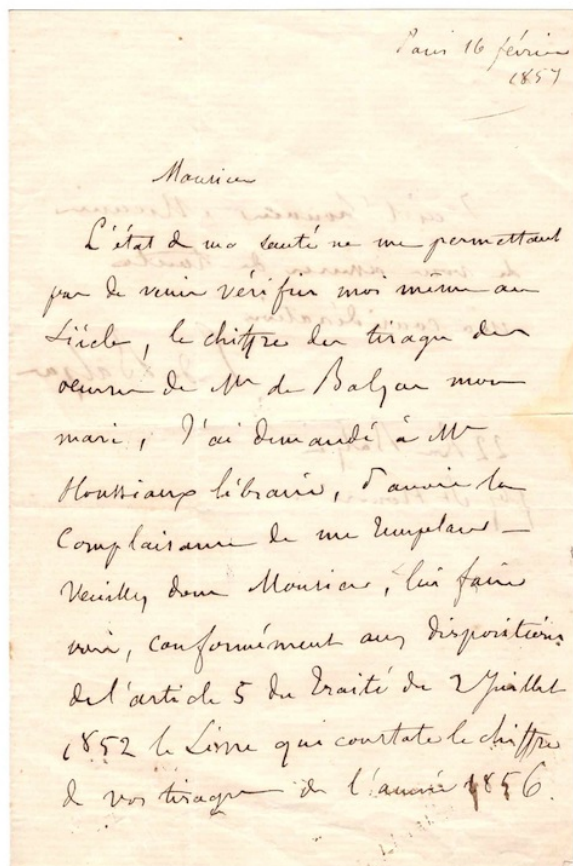 Paris 16 février
1857
Monsieur
L'état de ma santé ne me permettant
pas de venir vérifier moi même au
Siècle, le chiffre des tirages des
oeuvres de Mr de Balzac mon
mari, j'ai demandé à Mr
Houssiaux libraire, d'avoir la
complaisance de me remplacer –
Veuillez donc Monsieur, lui faire
voir, conformément aux dispositions
de l'article 5 du Traité du 2 Juillet
1852 le Livre qui constate le chiffre
de vos tirages de l'année 1856.